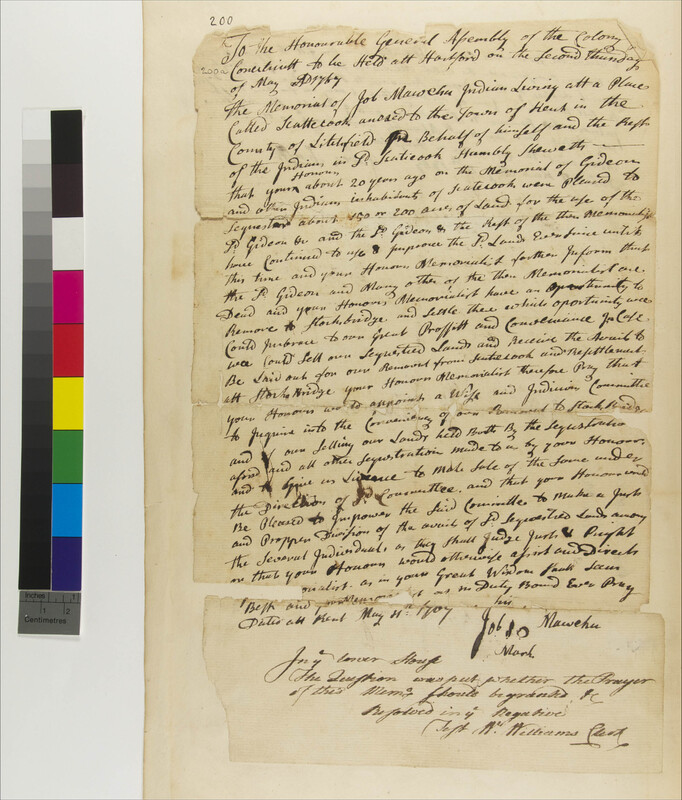 200
200a
To the Honourable General Assembly of the Colony
Conecticutt to be Held att Hartford on the Second Thursday
of May AD 1767
The Memorial of Job Mawehu Indian Living att a Place
Called Scattecook anexed to the Town of Kent in the
County of Litchfield In Behalf of himself and the Rest
of the Indians in Sd. Scaticook Humbly Sheweth
that your Honours about 20 years ago on the Memorial of Gideon
and other Indians inhabitants of Scatecook were Pleased to
Sequester about 150 or 200 acres of Land for the use of the
Sd. Gideon &c and the Sd. Gideon & the Rest of the then Memorialists
have Continued to use & improve the Sd. Lands Ever Since untill
this time and your Honours Memorialist farther Inform that
the Sd. Gideon and Many other of the then Memorialist are
Dead and your Honours Memorialist have an oportunity to
Remove to Stockbridge and Settle there which oportunity wee
Could Imbrace to our Great Proffitt and Conveniance In Case
wee Could Sell our Sequestred Lands and Receive the Avails to
Be Laid out for our Removal from Scatecook and Resettlement
att Stockbridge your Honours Memorialist therefore Pray that
your Honours would appoint a Wise and Judicious Committee
to Inquire into the Conveniency of our Removal to Stockbridge
and of our Selling our Lands held Both By the Sequestration
aforsd and all other Sequestration made to us by your Honours
and to Give us Licence to Make Sale of the Same under
the Direction of Sd. Committee. and that your Honours would
Be Pleased to Impower the Said Committee to Make a Just
and Propper Division of the avails of Sd Sequestred Lands among
the Several Individuals as they Shall Judge Just & Right
or that your Honours would otherwise assist and Direct
morialist as in your Great Wisdom Shall Seem
Best and your Memorialist as in Duty Bound Ever Pray
Dated att Kent May 11th 1767
his
Job Mawehu
Mark
In ye Lower House
The Question was put whether the Prayer
of this Meml. should be granted &c
Resolved in ye Negative
Test Wm Williams Clerk
Inches
1
2
Centimetres